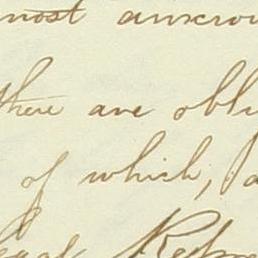 most anxiou
there are obli
of which, I a